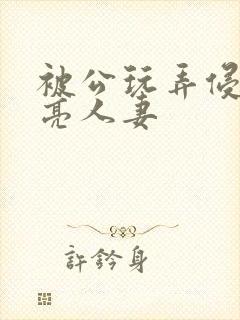 被公玩弄侵
亮人妻
許鈐身